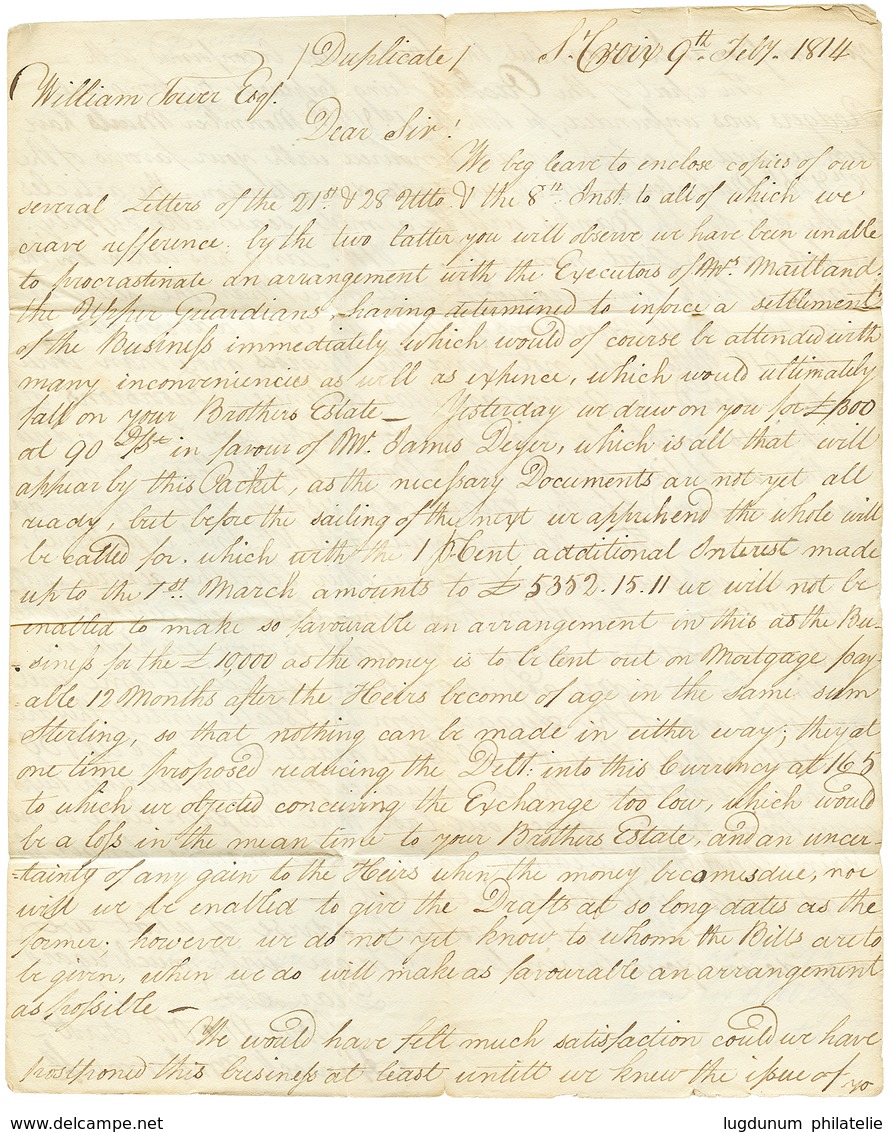 /Duplicate/ St. Croix 9th. Feby. 1814
William Tower Esqr.
Dear Sir!
We beg leave to enclose copies of our
several Letters of the 21st. & 28 Ulto & the 8th. Inst. to all of which we
crave refference; by the two latter you will observe we have been unable
to procrastinate an arrangement with the Executors of Mrs. Maitland.
the Upper Guardians, having determined to inforce a settlement
of the Business immediately which would of course be attended with
many inconveniencies as well as expence, which would ultimately
fall on your Brothers Estate — Yesterday we drew on you for
at 90 in favour of Mr. James Deyer, which is all that will
appear by this Packet, as the necessary Documents are not yet all
ready, but before the sailing of the next we apprehend the whole will
be called for, which with the 1 pCent, additional Interest made
up to the 1st. March amounts to £5352.15.11 we will not be
enabled to make so favourable an arrangement in this as the Bu-
-siness for the £10,000 as the money is to be lent out on Mortgage pay-
-able 12 Months after the Heirs become of age in the same sum
Sterling, so that nothing can be made in either way; they at
one time proposed reducing the Debt: into this Currency at 165
to which we objected conceiving the Exchange too low, which would
be a loss in the mean time to your Brothers Estate, and an uncer-
-tainty of any gain to the Heirs when the money becomes due, nor
will we be enabled to give the Drafts at so long dates as the
former; however we do not yet know to whom the Bills are to
be given, when we do will make as favourable an arrangement
as possible —
We would have felt much satisfaction could we have
postponed this business at least untill we knew the issue of
yo
lugdunum philatelie
www.delcampe.net